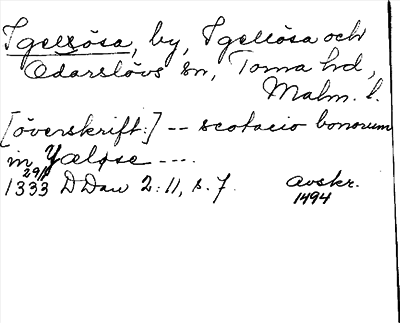 Igelösa, by, Igelösa och
Odarslövs sn, Torna hd,
Malm. l.
[överskrift:] -- scotacio bonorum
in Yæløse ---.
29/1
1333 DDan 2:11, s. 7. Avskr.
1494